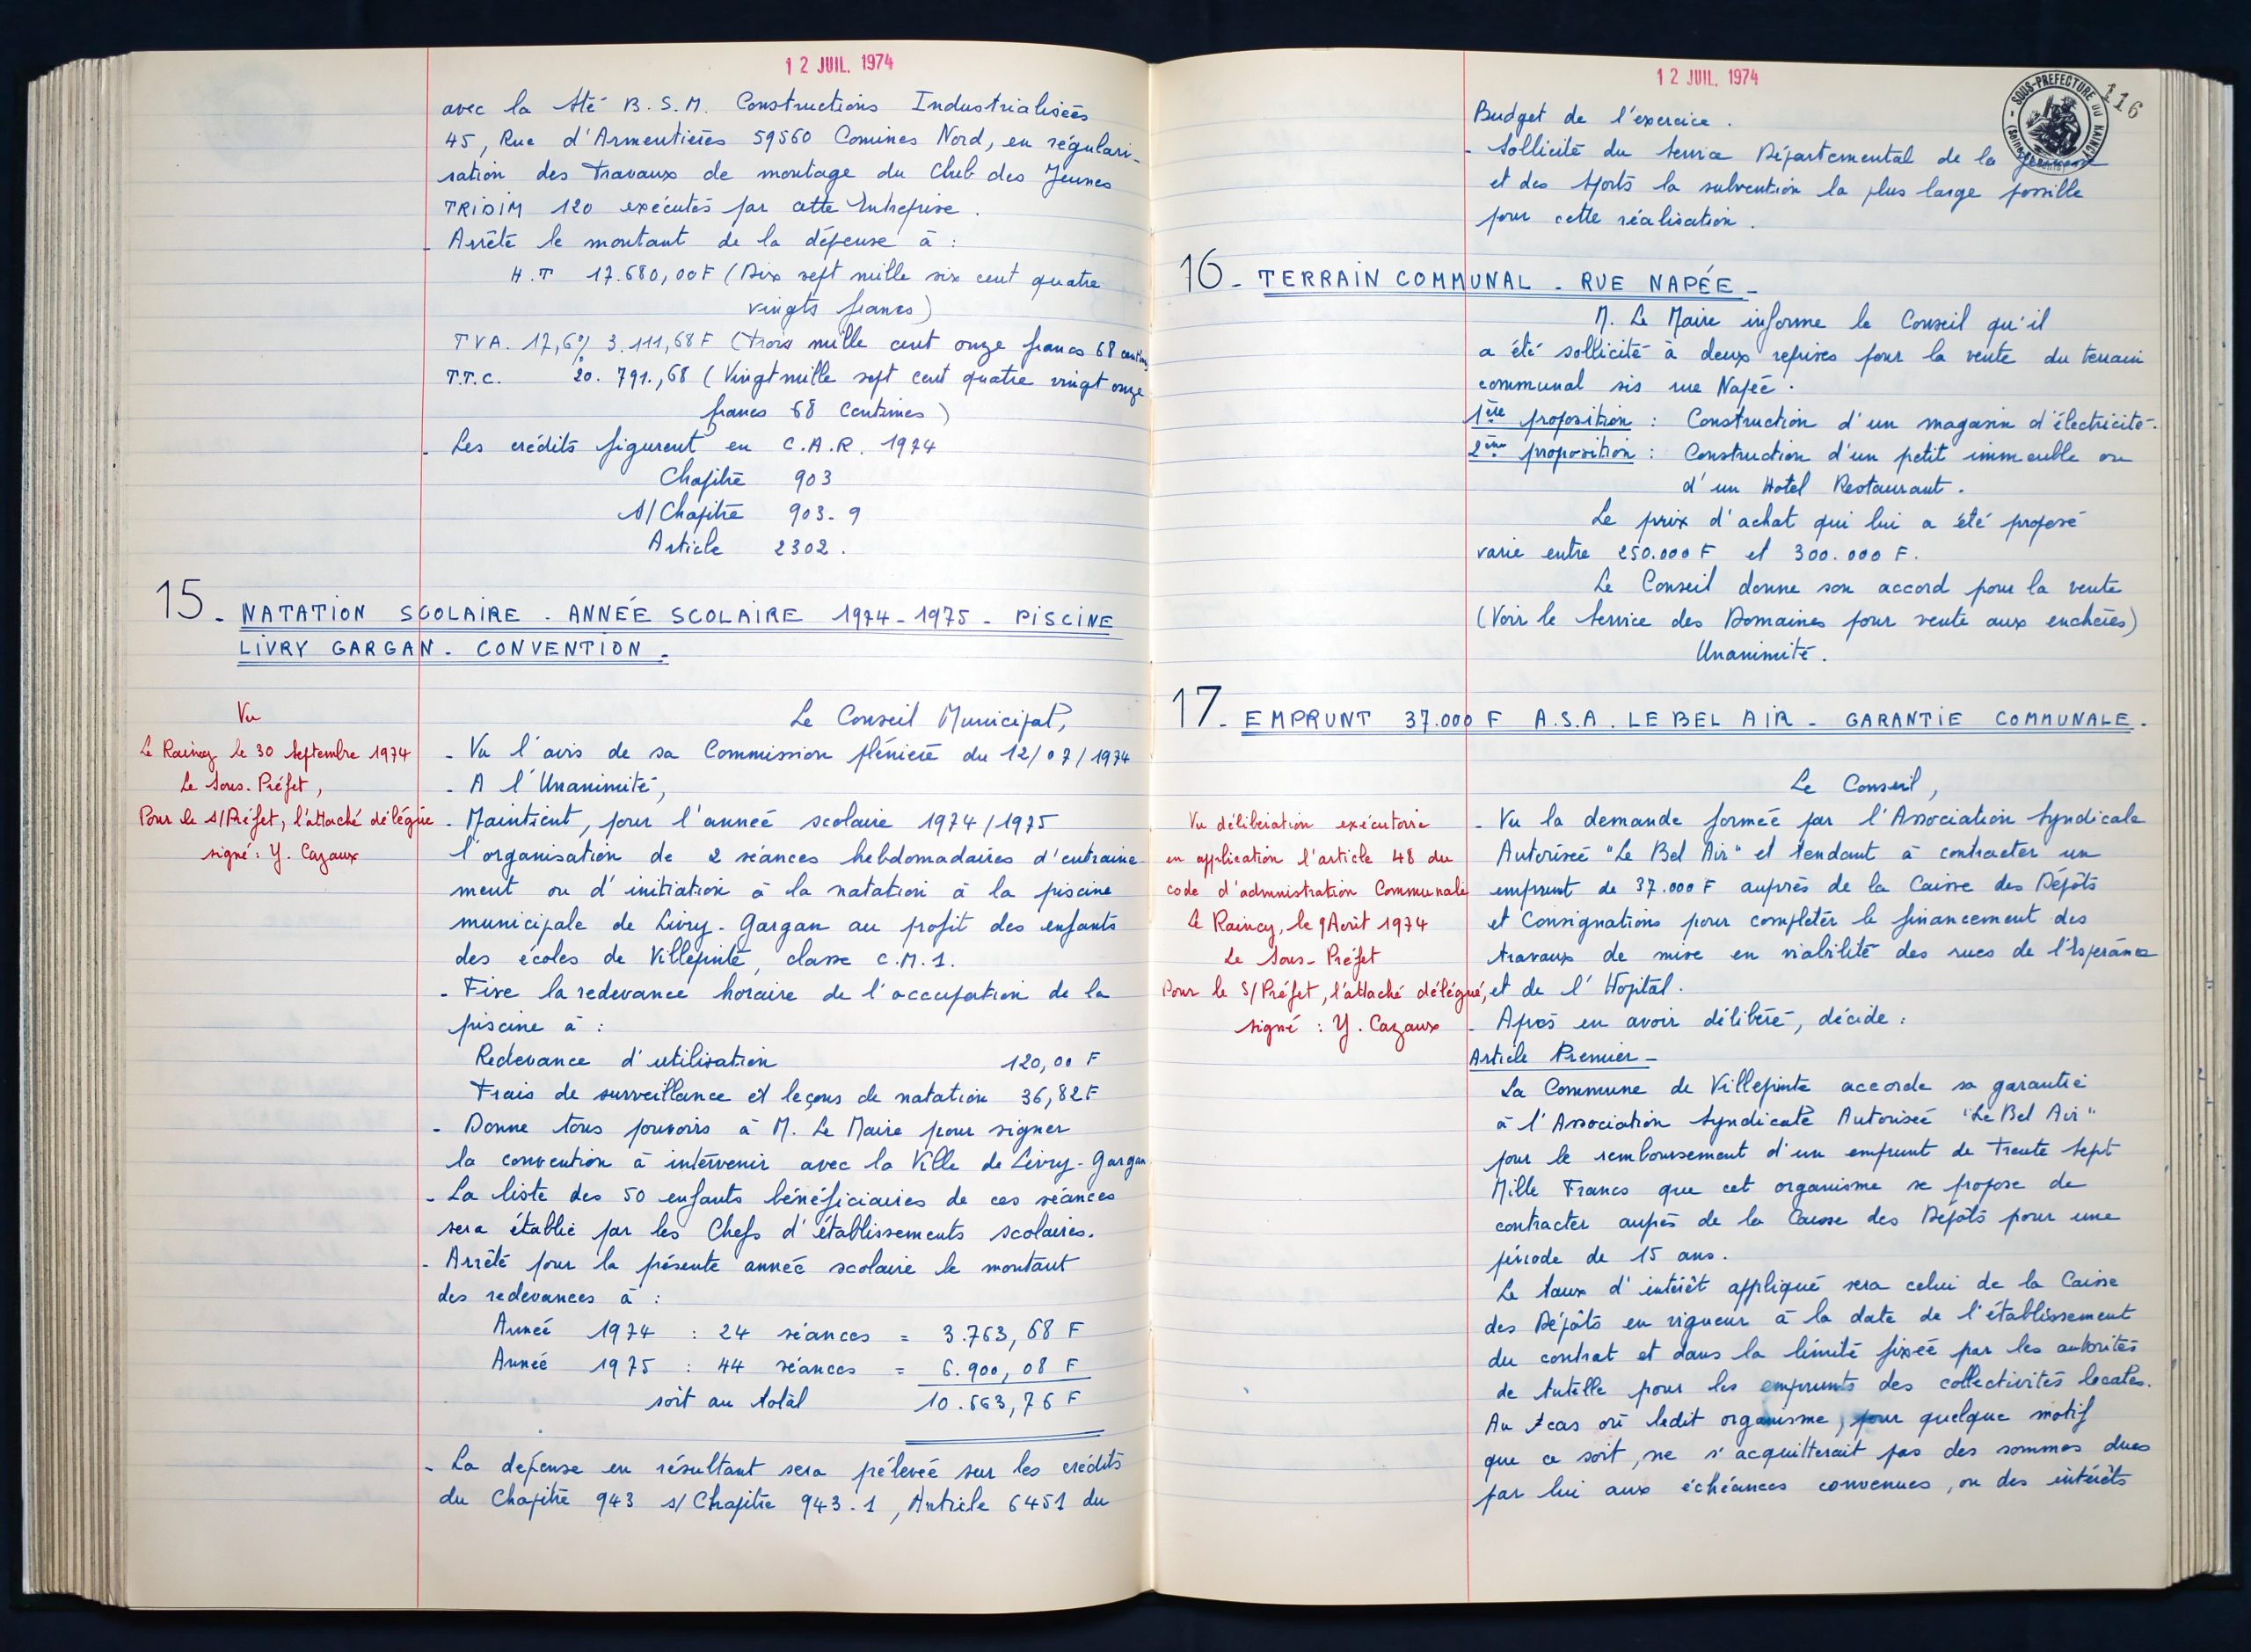 12 JUIL. 1974
avec la Sté B.S.M. Constructions Industrialisées
45, Rue d'Armentières 59560 Comines Nord, en régulari-
sation des travaux de montage du Club des Jeunes
TRIDIM 120 exécutés par cette Entreprise.
- Arrête le montant de la dépense à :
H.T 17.680,00F (Dix sept mille six cent quatre
vingts francs)
TVA. 17,6% 3.111,68 F (trois mille cent onze francs 68 centimes
T.T.C. 20.791,68 (Vingt mille sept cent quatre vingt onze
francs 68 Centimes)
- Les crédits figurent en C.A.R. 1974
Chapitre 903
S/Chapitre 903-9
Article 2302.
15 - NATATION SCOLAIRE. ANNÉE SCOLAIRE 1974-1975 - PISCINE
LIVRY GARGAN. CONVENTION.
Le Conseil Municipal,
- Vu l'avis de sa Commission plénière du 12/07/1974
- A l'Unanimité,
- Maintient, pour l'année scolaire 1974/1975
l'organisation de 2 séances hebdomadaires d'entraine-
ment ou d'initiation à la natation à la piscine
municipale de Livry-Gargan au profit des enfants
des écoles de Villepinte, classe C.M.1.
- Fixe la redevance horaire de l'occupation de la
piscine à :
Redevance d'utilisation 120,00 F
Frais de surveillance et leçons de natation 36,82F
- Donne tous pouvoirs à M. Le Maire pour signer
la convention à intervenir avec la Ville de Livry-Gargan
- La liste des 50 enfants bénéficiaires de ces séances
sera établie par les Chefs d'établissements scolaires.
- Arrête pour la présente année scolaire le montant
des redevances à :
Année 1974 : 24 séances = 3.763,68 F
Année 1975 : 44 séances = 6.900,08 F
soit au total 10.663,76 F
- La dépense en résultant sera prélevée sur les crédits
du Chapitre 943 s/Chapitre 943.1, Article 6451 du
Vu
Le Raincy le 30 Septembre 1974
Le Sous-Préfet,
Pour le S/Préfet, l'attaché délégué
signé : Y. Cazaux
12 JUIL. 1974
116
SOUS-PREFECTURE DU RAINCY
Budget de l'exercice.
- Sollicite du Service Départemental de la Jeunesse
et des Sports la subvention la plus large possible
pour cette réalisation.
16 - TERRAIN COMMUNAL - RUE NAPÉE -
M. Le Maire informe le Conseil qu'il
a été sollicité à deux reprises pour la vente du terrain
communal sis rue Napée.
1ère proposition : Construction d'un magasin d'électricité.
2ème proposition : Construction d'un petit immeuble ou
d'un Hotel Restaurant.
Le prix d'achat qui lui a été proposé
varie entre 250.000 F et 300.000 F.
Le Conseil donne son accord pour la vente
(Voir le Service des Domaines pour vente aux enchères)
Unanimité.
17 - EMPRUNT 37.000 F A.S.A. LE BEL AIR - GARANTIE COMMUNALE.
Le Conseil,
- Vu la demande formée par l'Association Syndicale
Autorisée "Le Bel Air" et tendant à contracter un
emprunt de 37.000 F auprès de la Caisse des Dépôts
et Consignations pour compléter le financement des
travaux de mise en viabilité des rues de l'Espérance
et de l'Hopital.
- Après en avoir délibéré, décide :
Article Premier -
La Commune de Villepinte accorde sa garantie
à l'Association Syndicale Autorisée "Le Bel Air"
pour le remboursement d'un emprunt de Trente Sept
Mille Francs que cet organisme se propose de
contracter auprès de la Caisse des Dépôts pour une
période de 15 ans.
Le taux d'intérêt appliqué sera celui de la Caisse
des Dépôts en vigueur à la date de l'établissement
du contrat et dans la limite fixée par les autorités
de tutelle pour les emprunts des collectivités locales.
Au cas où ledit organisme, pour quelque motif
que ce soit, ne s'acquitterait pas des sommes dues
par lui aux échéances convenues, ou des intérêts
Vu délibération exécutoire
en application l'article 48 du
code d'administration Communale
Le Raincy, le 9 Août 1974
Le Sous-Préfet
Pour le S/Préfet, l'attaché délégué,
signé : Y. Cazaux